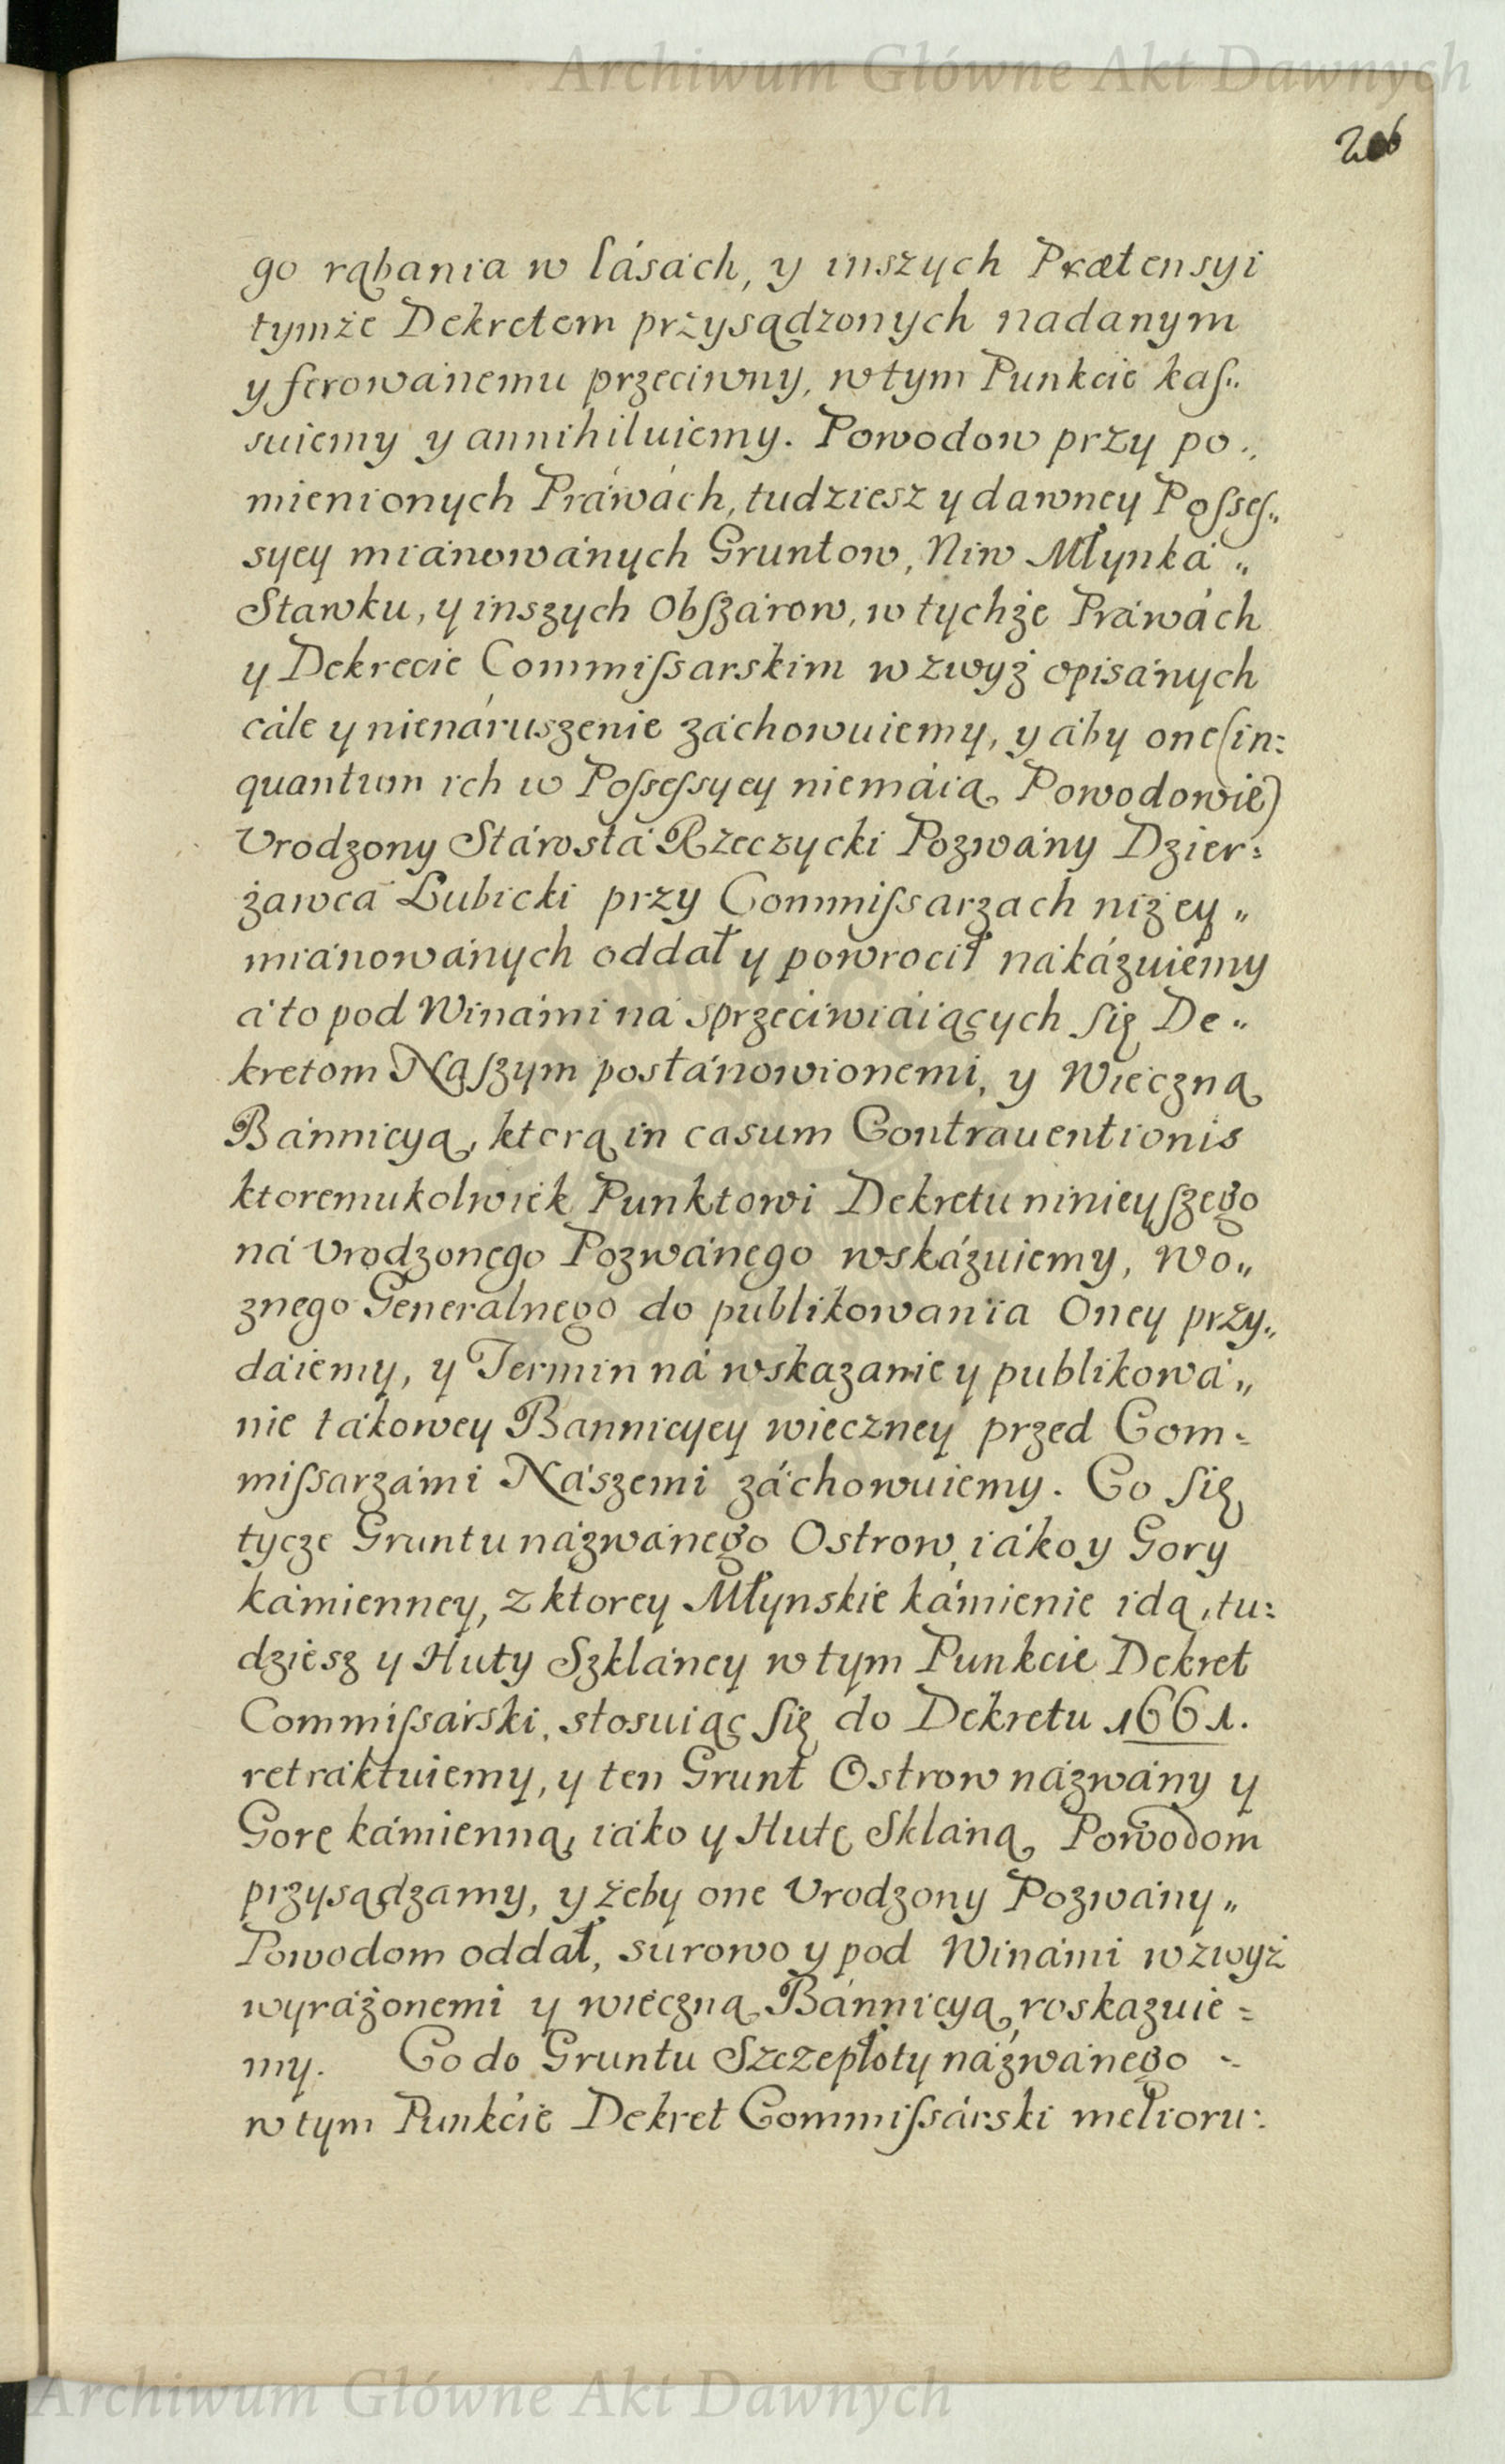 Archiwum Główne Akt Dawnych
206
go rąbania w lásách, y inszych Prætensyi
tymże Dekretem przysądzonych nadanym
y ferowánemu przeciwny, w tym Punkcie kaſ„
suiemy y annihiluiemy. Powodow przy po„
mienionych Práwách, tudziesz y dawney Poſseſ„
syey miánowánych Gruntow, Niw Młynká„
Stawku, y inszych Obſzárow, w tychże Práwách
y Dekrecie Commiſsarskim wzwyż opisánych
cále y nienáruszenie záchowuiemy, y áby one (in:
quantum ich w Poſseſsyey niemáią Powodowie)
Vrodzony Stárostá Rzeczycki Pozwány Dzier:
żawcá Lubicki przy Commiſsarzach niżey„
miánowánych oddał y powrocił nákázuiemy
á to pod Winámi ná sprzeciwiáiących ſię De„
kretom Náſzym postánowionemi, y Wieczną
Bánnicyą, ktorą in casum Contrauentionis
ktoremukolwiek Punktowi Dekretu ninieyſzego
ná Vrodzonego Pozwánego wskázuiemy, Wo„
znego Generalnego do publikowania Oney przy„
dáiemy, y Termin ná wskazanie y publikowá„
nie tákowey Bannicyey wieczney przed Com:
miſsarzámi Nászemi záchowuiemy. Co ſię
tycze Gruntu názwánego Ostrow, iáko y Gory
kámienney, z ktorey Młynskie kámienie idą, tu:
dziesz y Huty Szkláney w tym Punkcie Dekret
Commiſsárski, stosuiąc ſię do Dekretu 1661.
retráktuiemy, y ten Grunt Ostrow názwány y
Gorę kámienną, iáko y Hutę Skláną Powodom
przysądzamy, y żeby one Vrodzony Pozwány„
Powodom oddał, surowo y pod Winámi wzwyż
wyráżonemi y wieczną Bánnicyą, roskazuie:
my. Co do Gruntu Szczepłoty názwánego -
w tym Punkcie Dekret Commiſsárski melioru:
Archiwum Główne Akt Dawnych